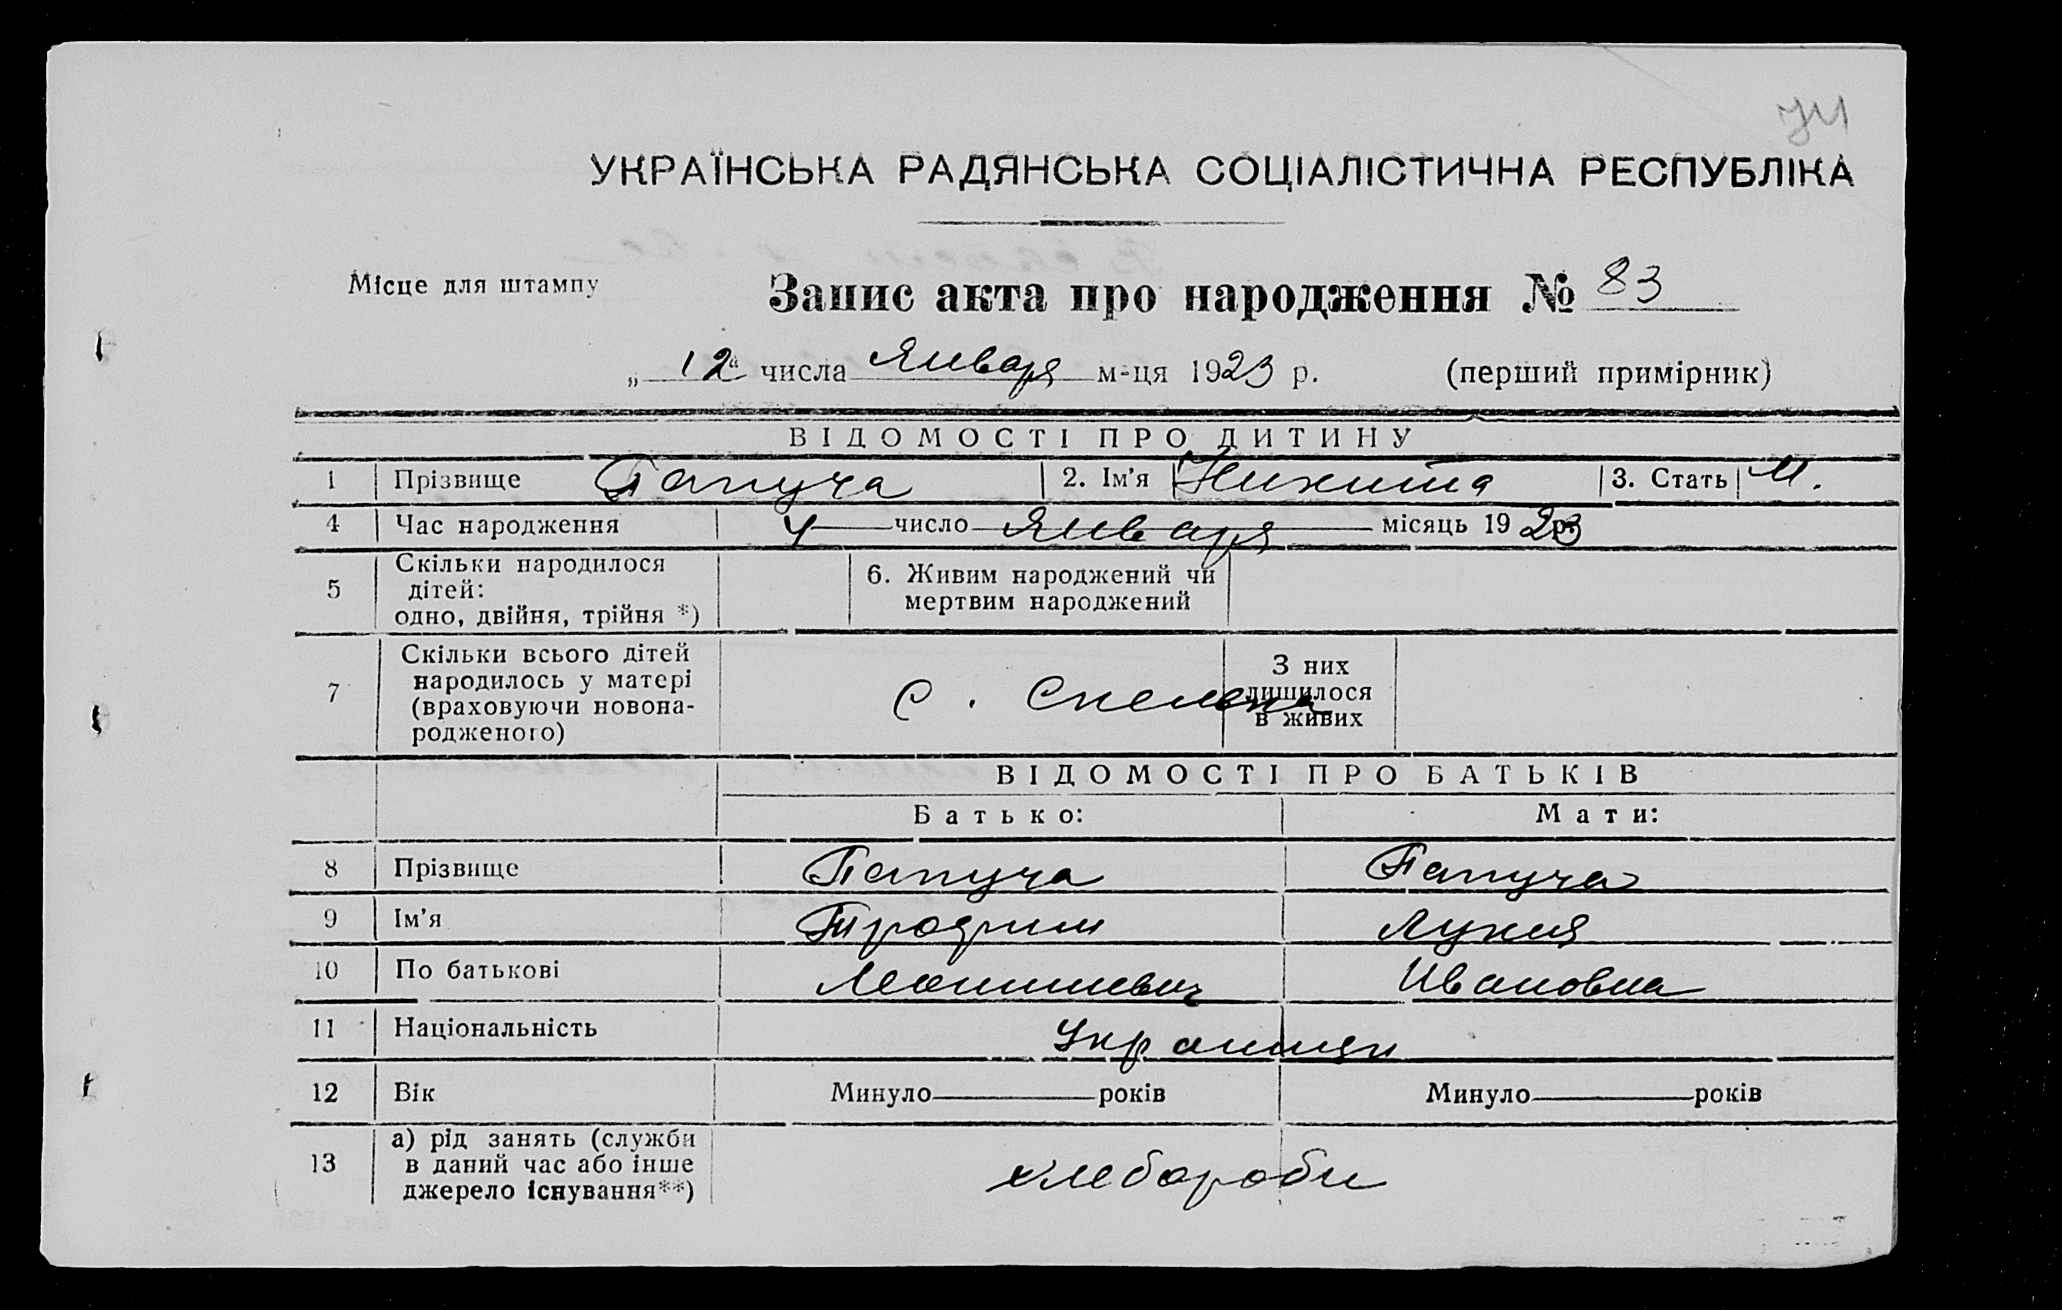 УКРАЇНСЬКА РАДЯНСЬКА СОЦІАЛІСТИЧНА РЕСПУБЛІКА
Місце для штампу
Запис акта про народження № 83
„ 12 “ числа Января м-ця 1923 р. (перший примірник)
ВІДОМОСТІ ПРО ДИТИНУ
1 Прізвище Папуча 2. Ім’я Никита 3. Стать М.
4 Час народження 4 число Января місяць 1923 р.
5 Скільки народилося дітей: одно, двійня, трійня *) 6. Живим народжений чи мертвим народжений
7 Скільки всього дітей народилось у матері (враховуючи новонародженого) с. З них лишилося в живих
ВІДОМОСТІ ПРО БАТЬКІВ
Батько: Мати:
8 Прізвище Папуча Папуча
9 Ім’я Трофим Лукия
10 По батькові Ивановна
11 Національність Украинци
12 Вік Минуло років Минуло років
13 а) рід занять (служби в даний час або інше джерело існування**) хлебороби